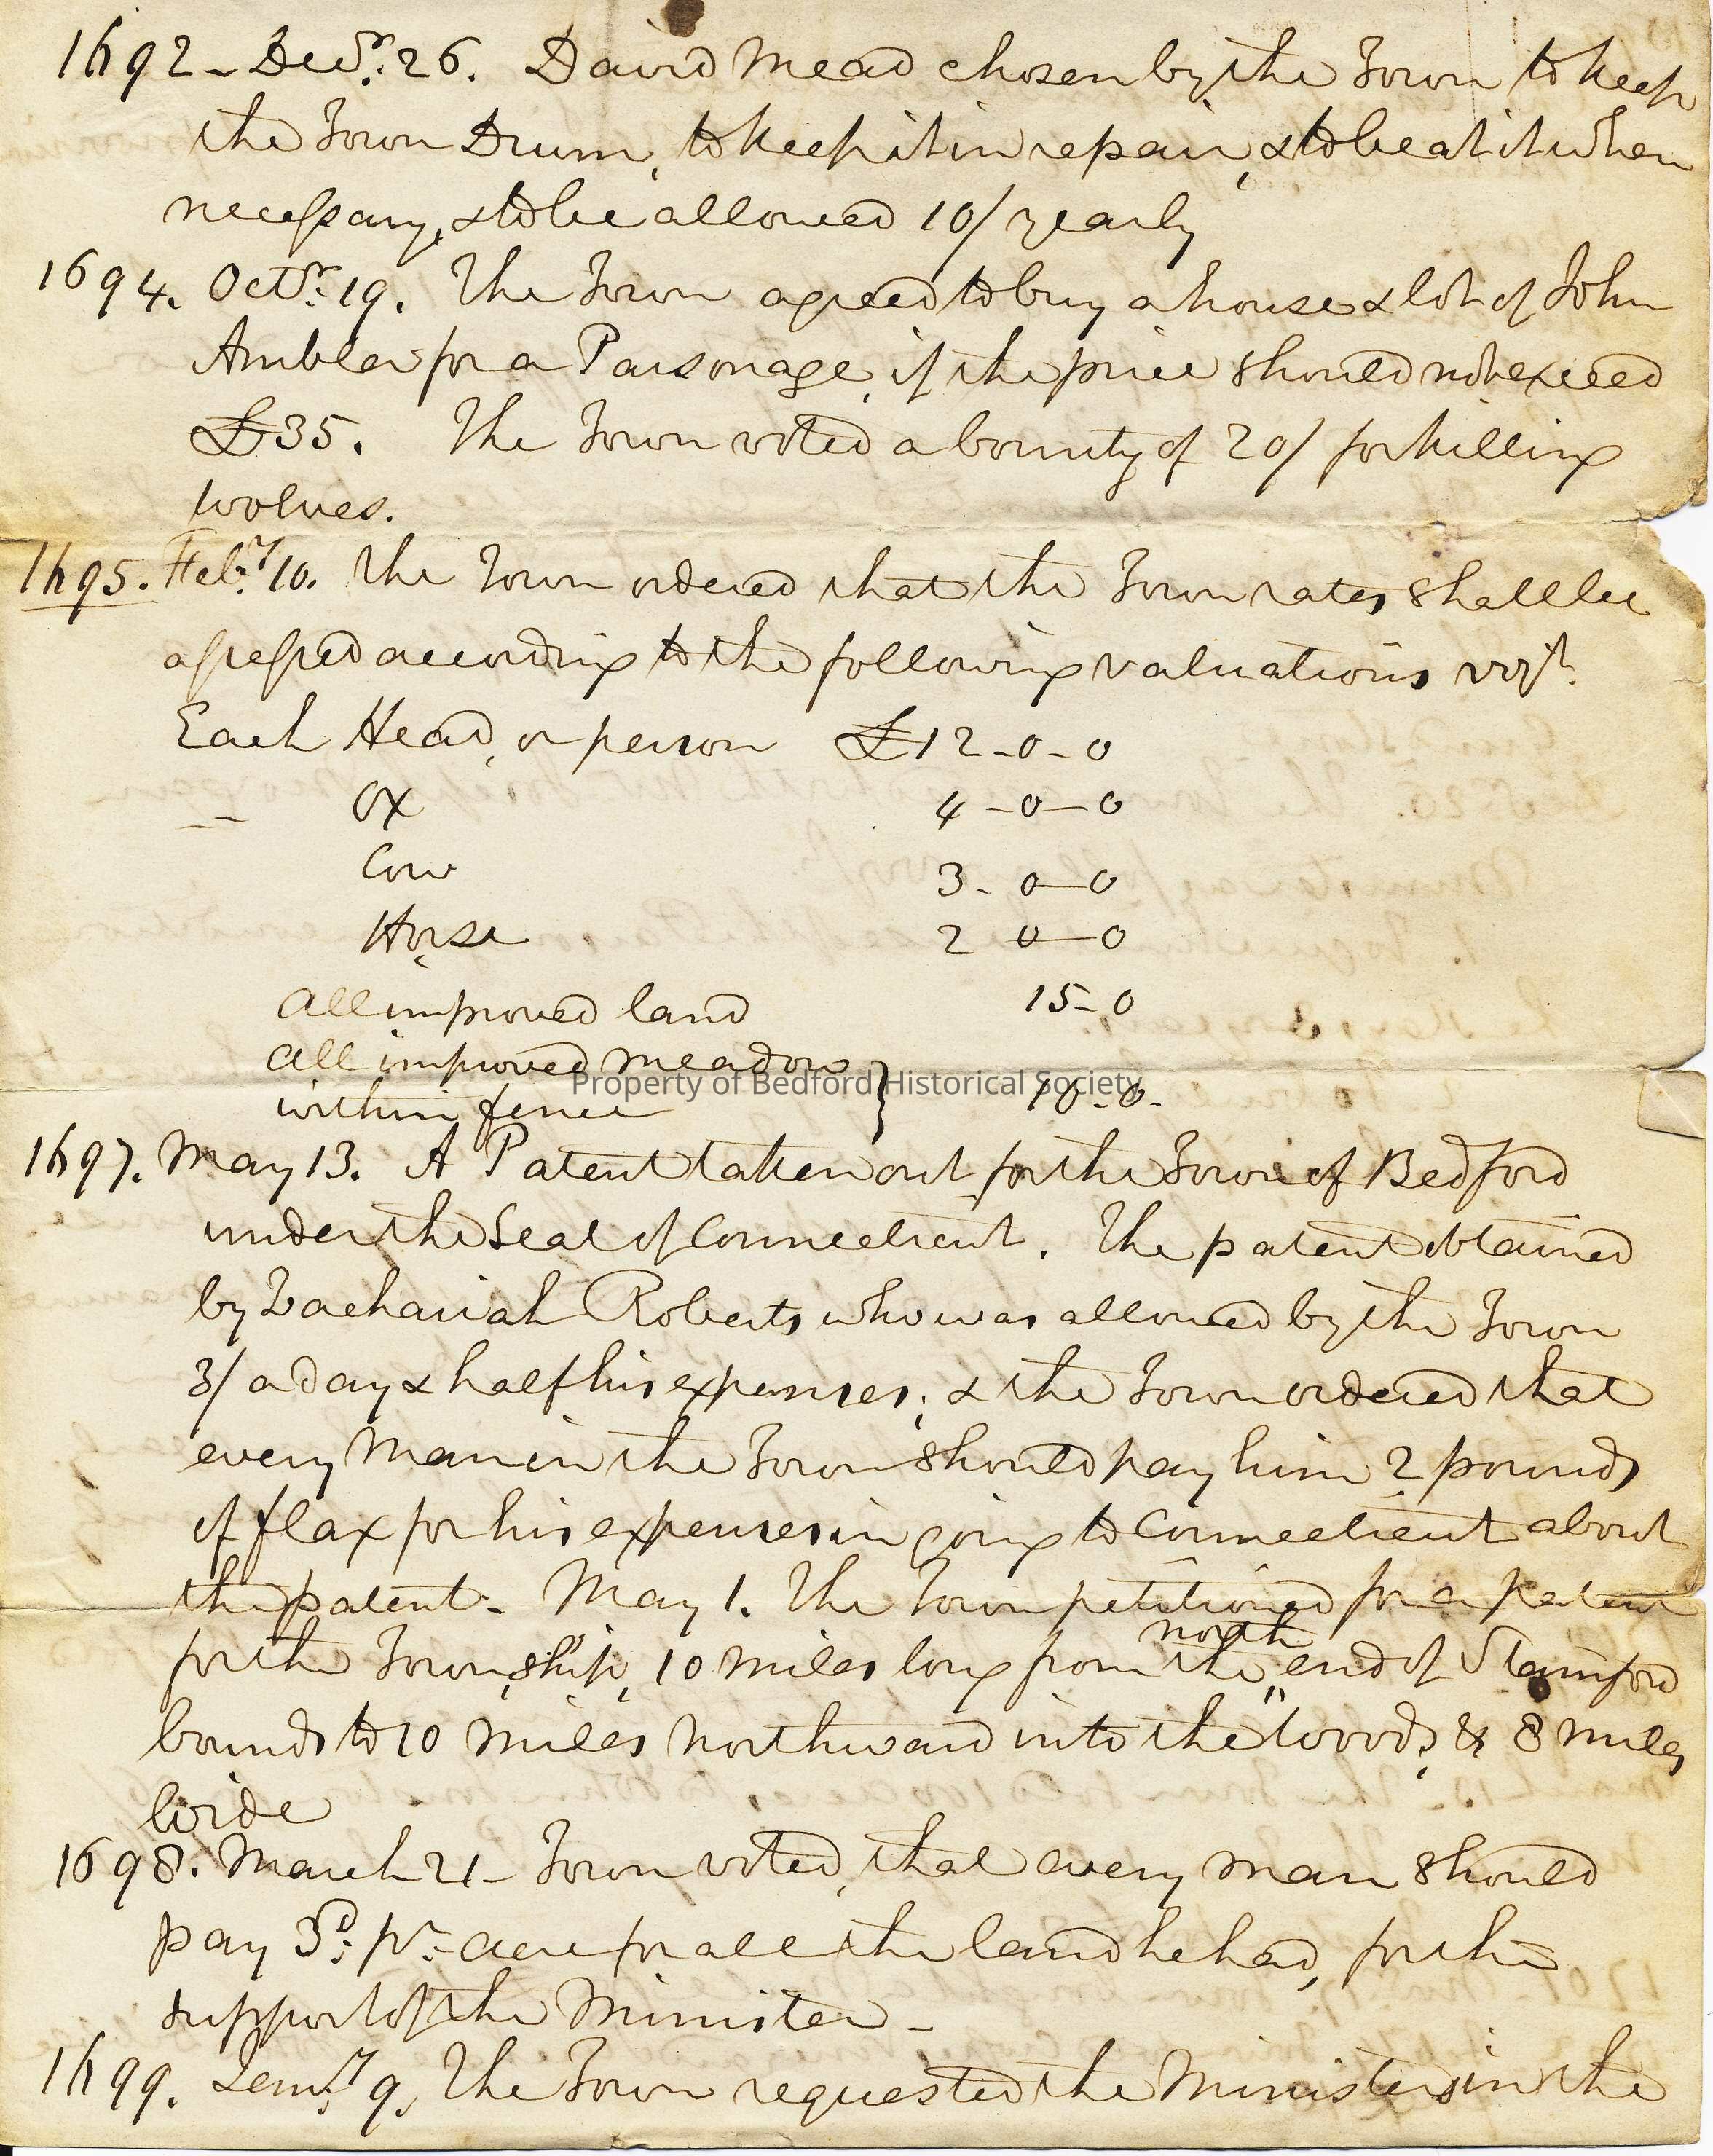 1692 - Decr. 26. David Mead chosen by the Town to keep
the Town Drum, to keep it in repair, & to beat it when
necessary, & to be allowed 10/ yearly
1694. Octr. 19. The Town agreed to buy a house & lot of John
Ambler for a Parsonage, if the price should not exceed
£35. The Town voted a bounty of 20/ for killing
wolves.
1695. Feby. 10. The Town ordered that the Town rates shall be
assessed according to the following valuations vizt.
Each Head, or person £12-0-0
-- Ox 4-0-0
Cow 3-0-0
Horse 2 0-0
All improved land 15-0
All improved meadow }
within fence 10-0-
Property of Bedford Historical Society
1697. May 13. A Patent taken out for the Town of Bedford
under the Seal of Connecticut. The patent obtained
by Zachariah Roberts who was allowed by the Town
3/ a day & half his expenses; & the Town ordered that
every Man in the Town should pay him 2 pounds
of flax for his expenses in going to Connecticut about
the patent - May 1. The Town petitioned for a patent
north
for the Town,ship, 10 miles long from the end of Stamford
bounds to 10 miles northward into the woods, & 8 miles
wide
1698. March 21 - Town voted, that every man should
pay 3d. pr. acre for all the land he had, for the
support of the Minister -
1699. Jany. 9. The Town requested the Ministers in the